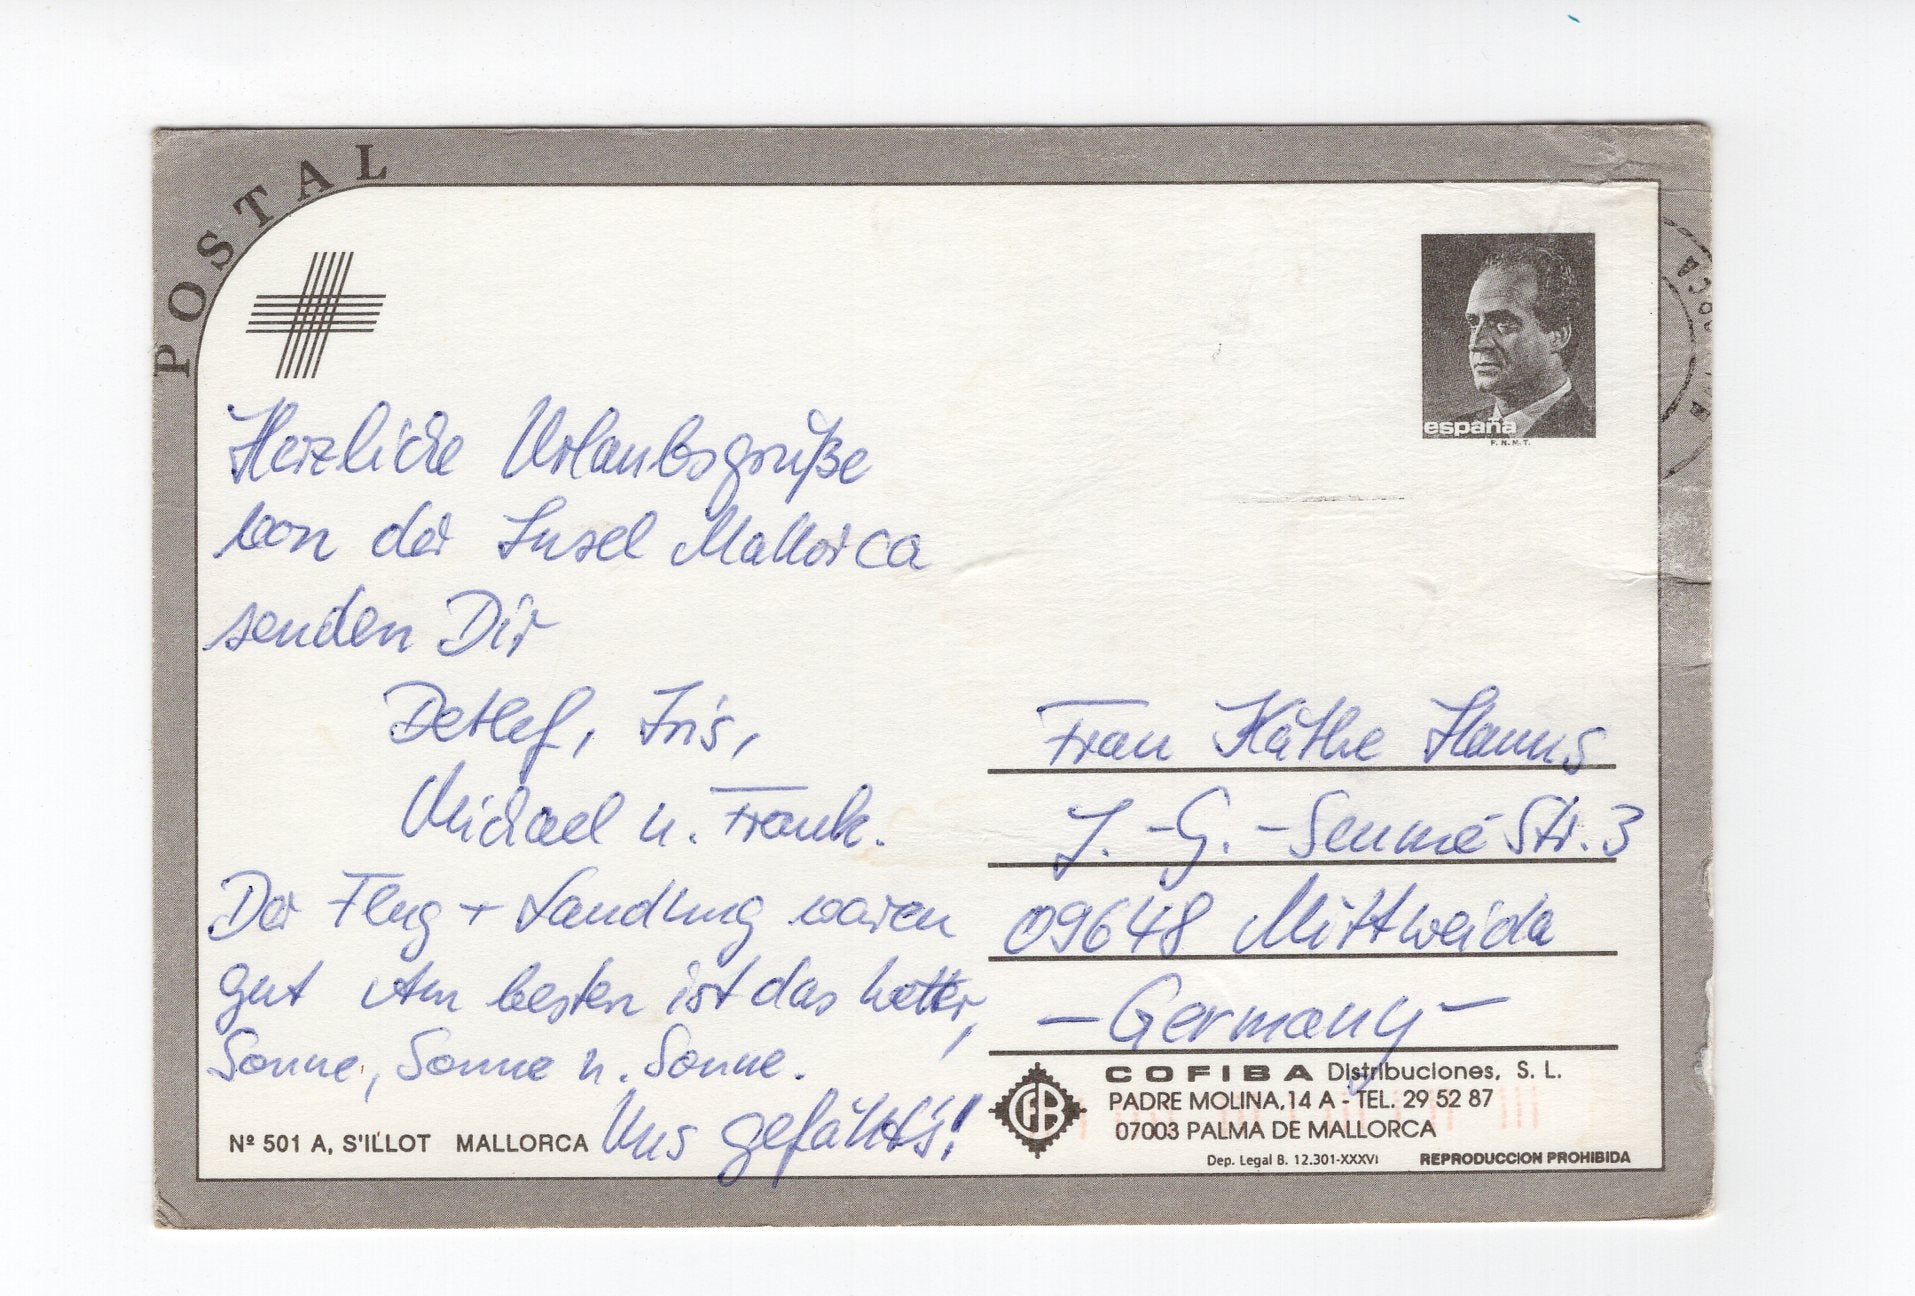 POSTAL
españa
F.N.M.T.
Herzliche Urlaubsgrüße
von der Insel Mallorca
senden Dir
Detlef, Iris,
Michael u. Frank.
Der Flug + Landung waren
gut Am besten ist das Wetter,
Sonne, Sonne u. Sonne.
Uns gefällt's!
Frau Käthe
J.-G.-Seume Str. 3
09648 Mittweida
- Germany -
COFIBA Distribuciones, S. L.
PADRE MOLINA, 14 A - TEL. 29 52 87
07003 PALMA DE MALLORCA
Dep. Legal B. 12.301-XXXVI REPRODUCCION PROHIBIDA
Nº 501 A, S'ILLOT MALLORCA